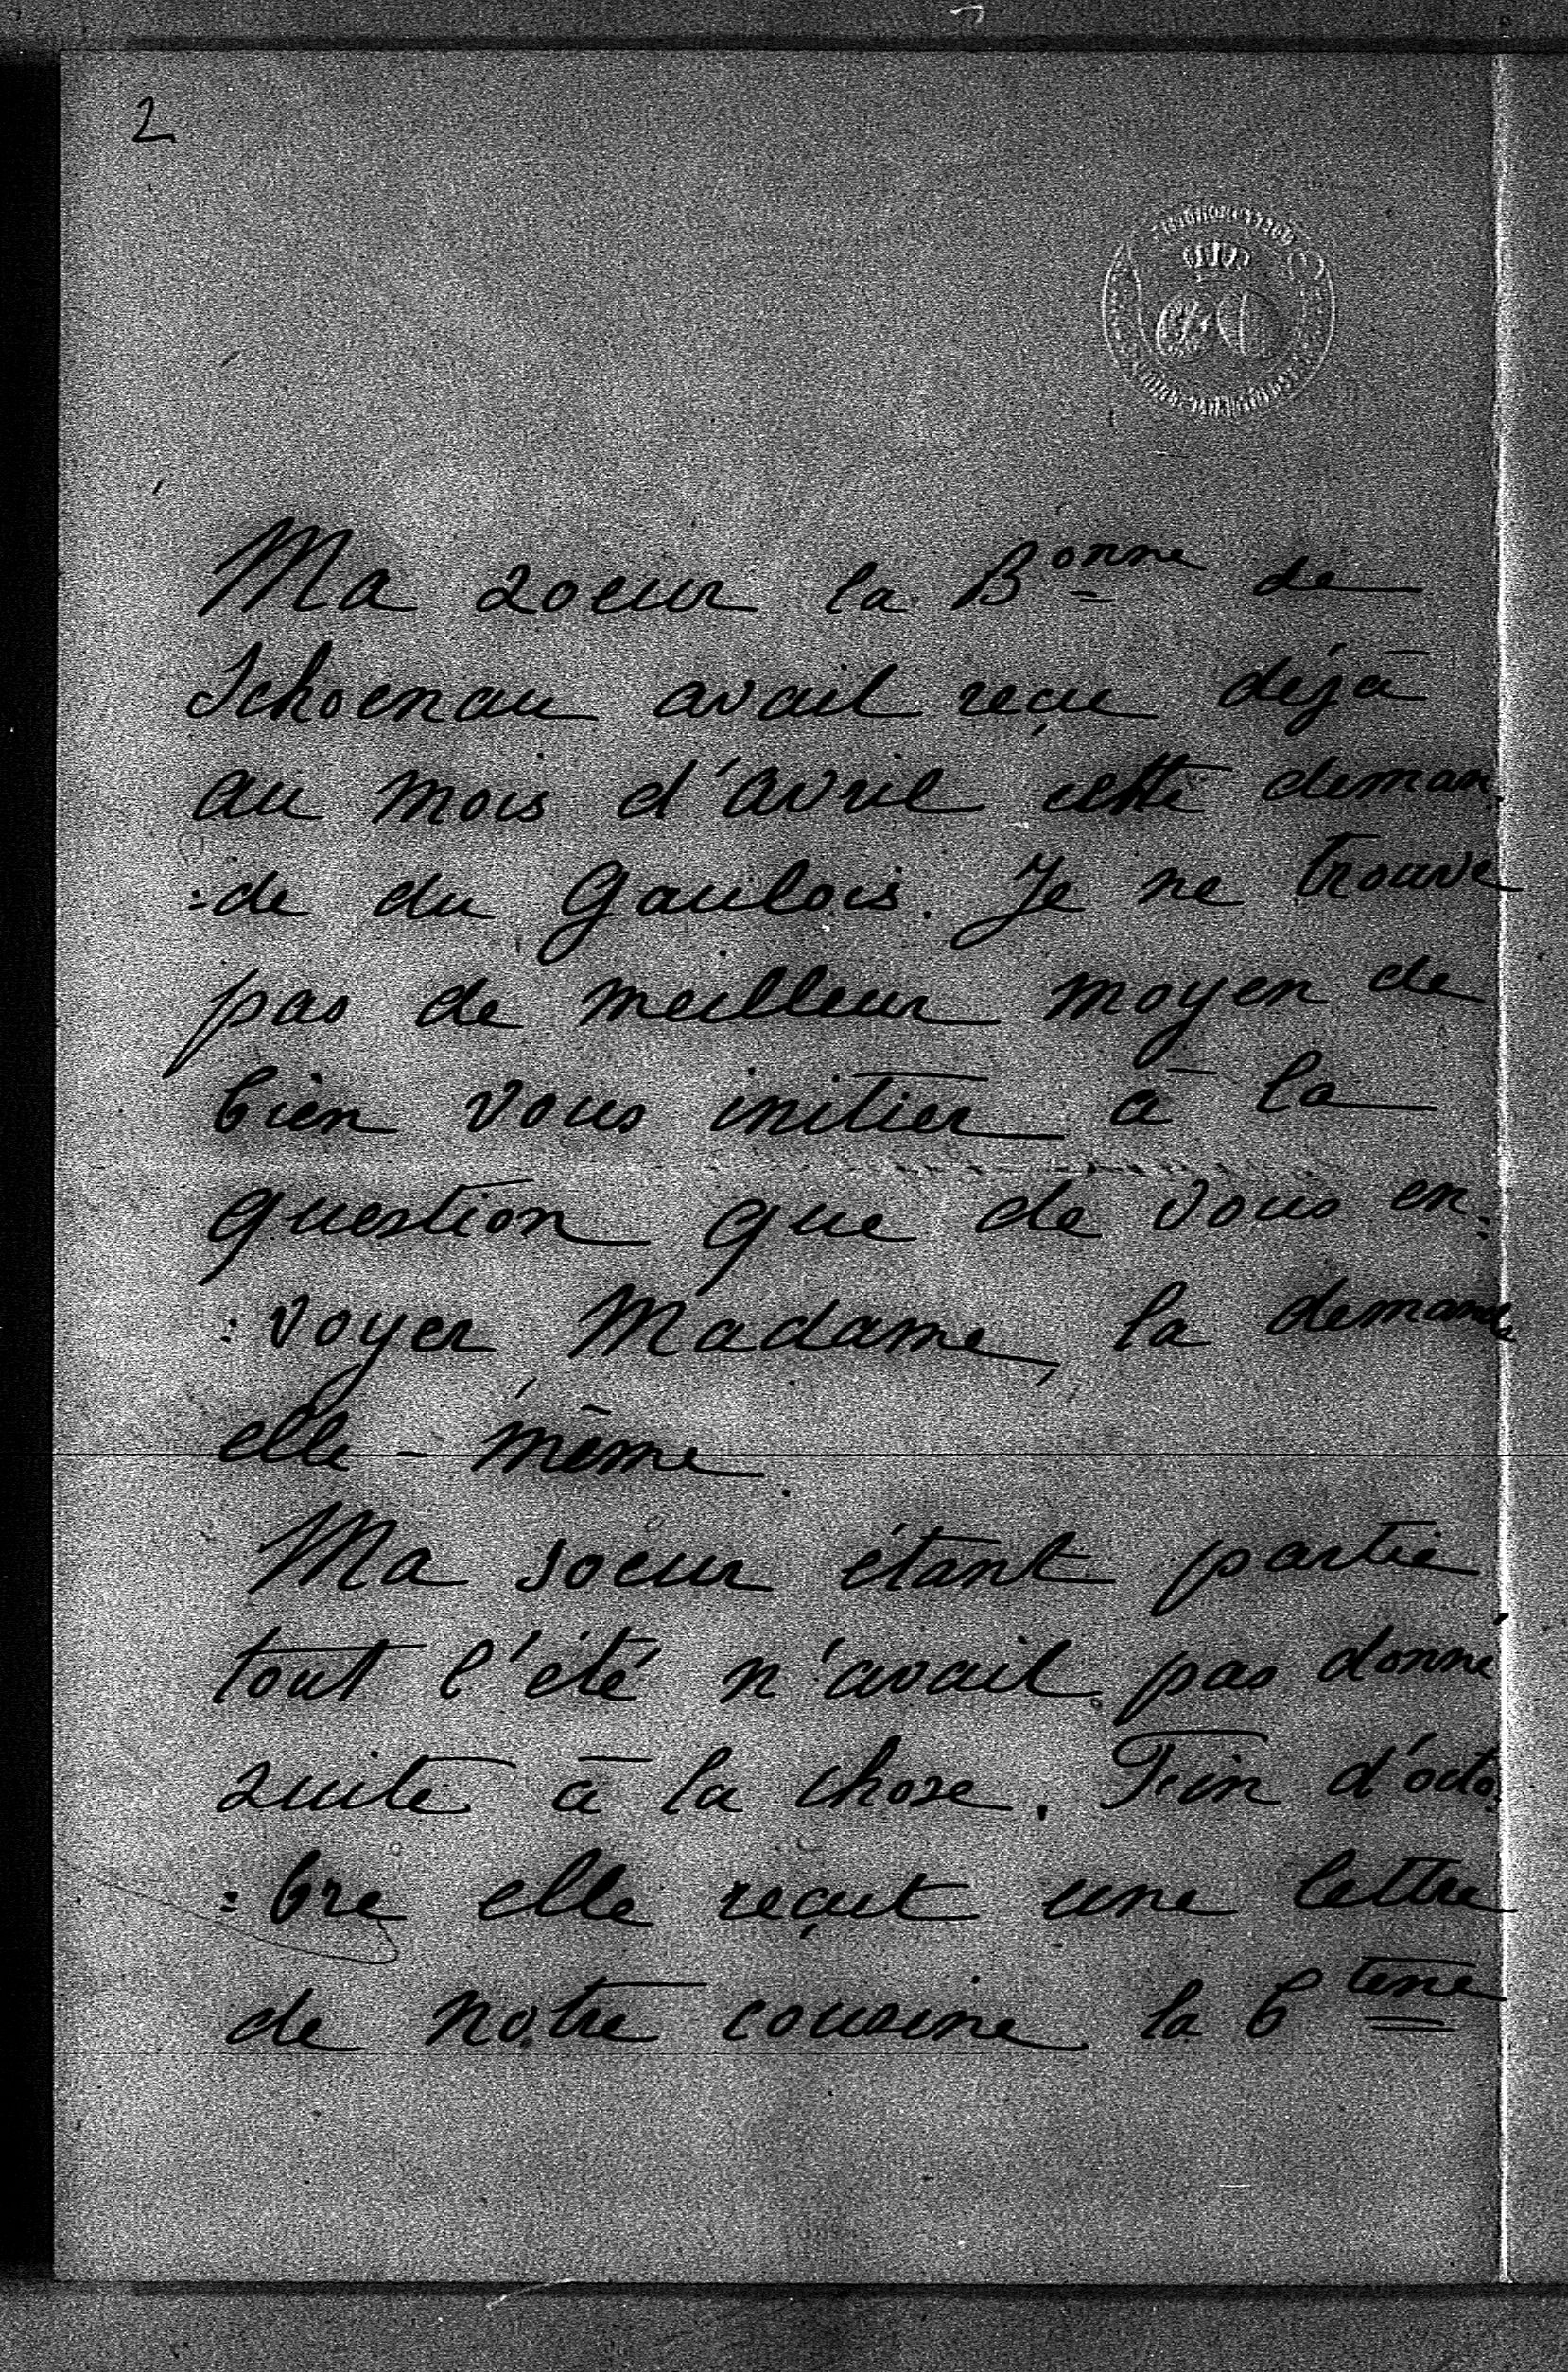 2
Ma soeur la Bonne de
Schoenau avait reçu déjà
au mois d'avril cette deman:
:de du Gaulois. Je ne trouve
pas de meilleur moyen de
bien vous initier à la
question que de vous en:
:voyer Madame, la demande
elle-même.
Ma soeur étant partie
tout l'été n'avait pas donné
suite à la chose. Fin d'octo:
:bre elle reçut une lettre
de notre cousine la Ctesse